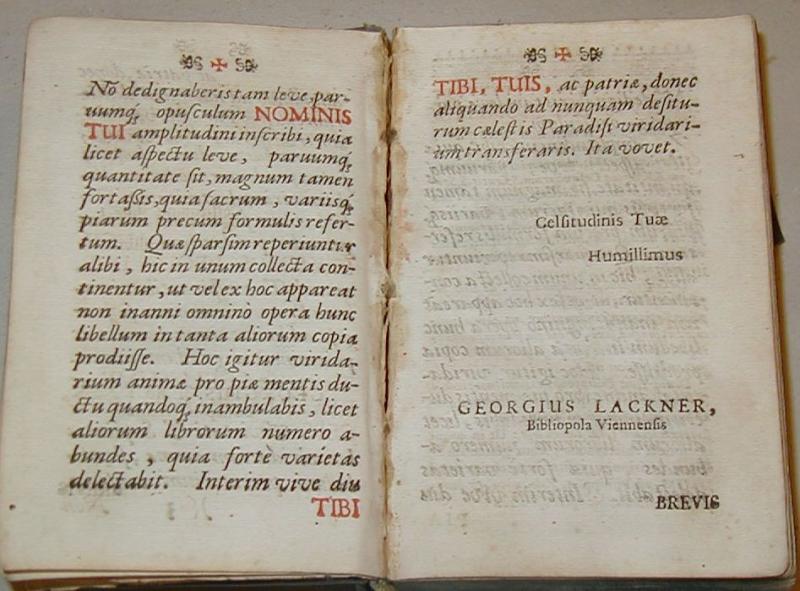 Nō dedignaberis tam leve, par-
uumq; opusculum NOMINIS
TUI amplitudini inscribi, quia
licet aſpectu leve, paruumq;
quantitate ſit, magnum tamen
fortaſsis, quia ſacrum, variisq;
piarum precum formulis refer-
tum. Quæ ſparſim reperiuntur
alibi, hic in unum collecta con-
tinentur, ut vel ex hoc appareat
non inanni omninò opera hunc
libellum in tanta aliorum copia
prodiiſſe. Hoc igitur virida-
rium animæ pro piæ mentis du-
ctu quandoq; inambulabis, licet
aliorum librorum numero a-
bundes, quia forte varietas
delectabit. Interim vive diu
TIBI
TIBI, TUIS, ac patriæ, donec
aliquando ad nunquam deſitu-
rum cæleſtis Paradiſi viridari-
um transferaris. Ita vovet.
Celſitudinis Tuæ
Humillimus
GEORGIUS LACKNER,
Bibliopola Viennenſis
BREVIS